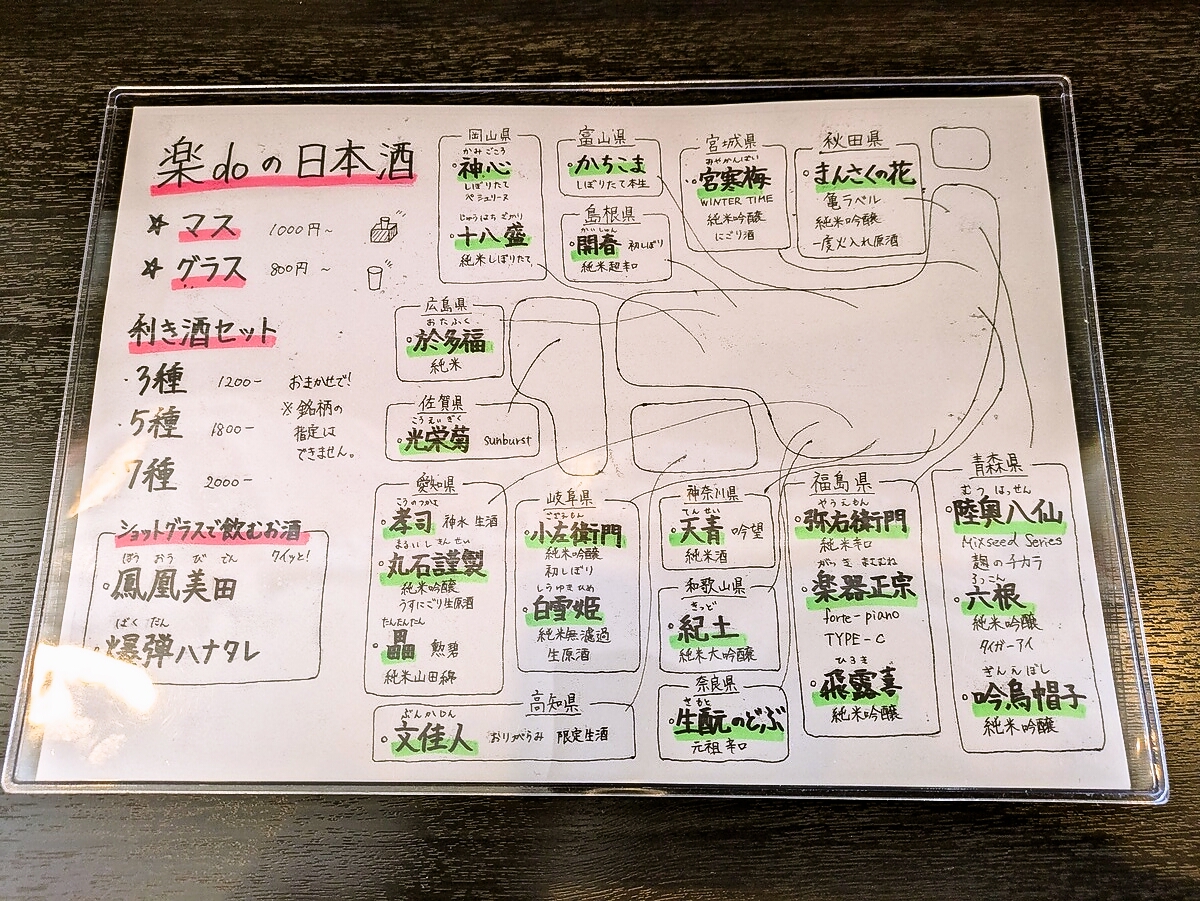 楽doの日本酒
☆ マス 1000円~
☆ グラス 800円 ~
利き酒セット
・3種 1200-
・5種 1800-
7種 2000-
おまかせで!
※銘柄の
指定は
できません。
ショットグラスで飲むお酒
クイッと!
ほう おう び でん
・鳳凰美田
ばく だん
・爆弾ハナタレ
岡山県
かみ ごころ
・神心
しぼりたて
じゅうはち ざかり
・十八盛
純米しぼりたて
富山県
・かちこま
しぼりたて本生
島根県
かい しゅん
・開春 初しぼり
純米超辛口
宮城県
みやかんばい
・宮寒梅
WINTER TIME
純米吟醸
にごり酒
秋田県
・まんさくの花
亀ラベル
純米吟醸
一度火入れ原酒
広島県
おたふく
・於多福
純米
佐賀県
こうえい ぎく
・光栄菊 Sunburst
愛知県
こうのつかさ
・孝司 神水 生酒
まるいし きん せい
・丸石謹製
純米吟醸
うすにごり生原酒
たんたんたん
・畾 勲碧
純米山田錦
岐阜県
こざえもん
・小左衛門
純米吟醸
初しぼり
しらゆきひめ
・白雪姫
純米無濾過
生原酒
高知県
ぶんかじん
・文佳人 おりがらみ 限定生酒
神奈川県
てん せい
・天青 吟望
純米酒
和歌山県
きっど
・紀土
純米大吟醸
奈良県
きもと
・生酛のどぶ
元祖 辛口
福島県
やうえもん
・弥右衛門
純米辛口
がっき まさむね
・楽器正宗
forte-piano
TYPE-C
ひろき
・飛露喜
純米吟醸
青森県
むつ はっせん
・陸奥八仙
Mixseed Series
麹のチカラ
ろっこん
・六根
純米吟醸
タイガーアイ
ぎんえぼし
・吟烏帽子
純米吟醸